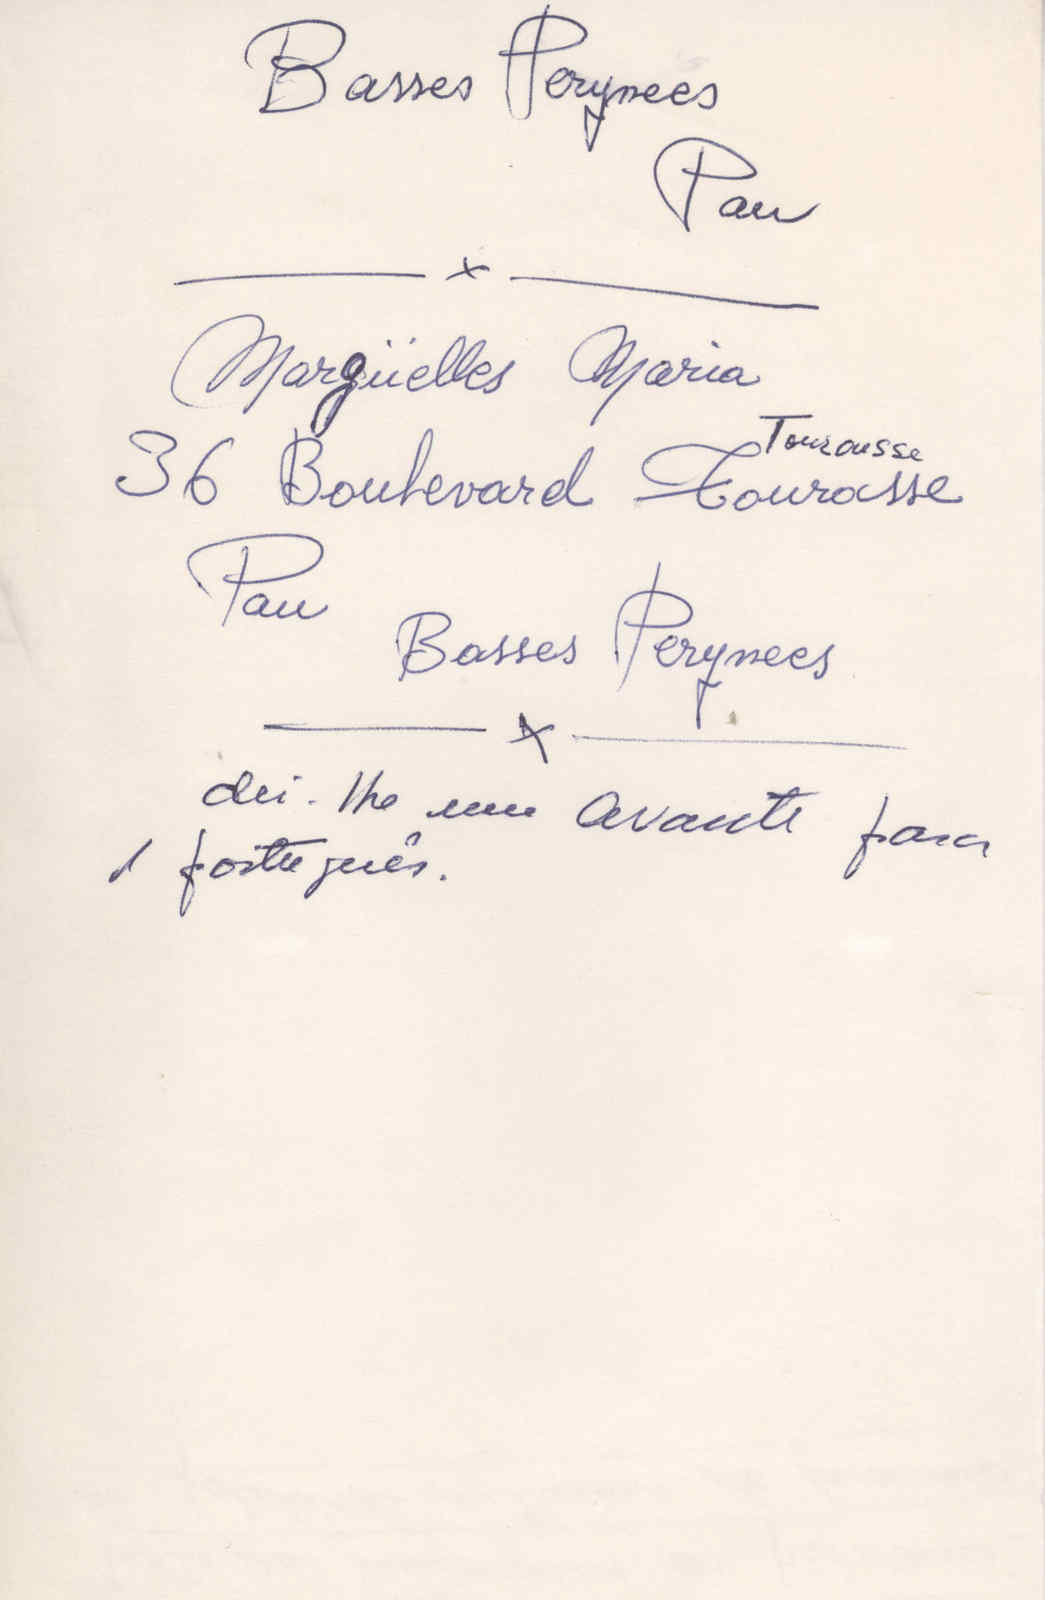 Basses Perynees
Pau
x
Margüelles Maria
Tourasse
36 Boulevard Tourasse
Pau
Basses Perynees
x
dei-lhe um Avante para
1 português.